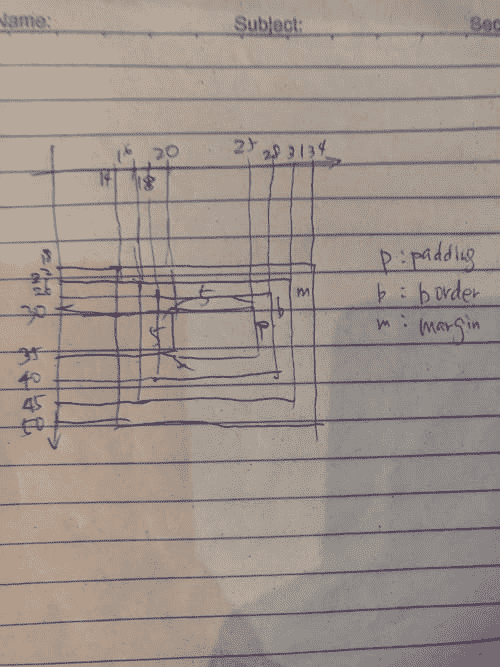 Name: Subject: Sec
16 20 25 28 31 34
14 18
30
35
40
45
50
5
5
p
b
m
p : padding
b : border
m : margin